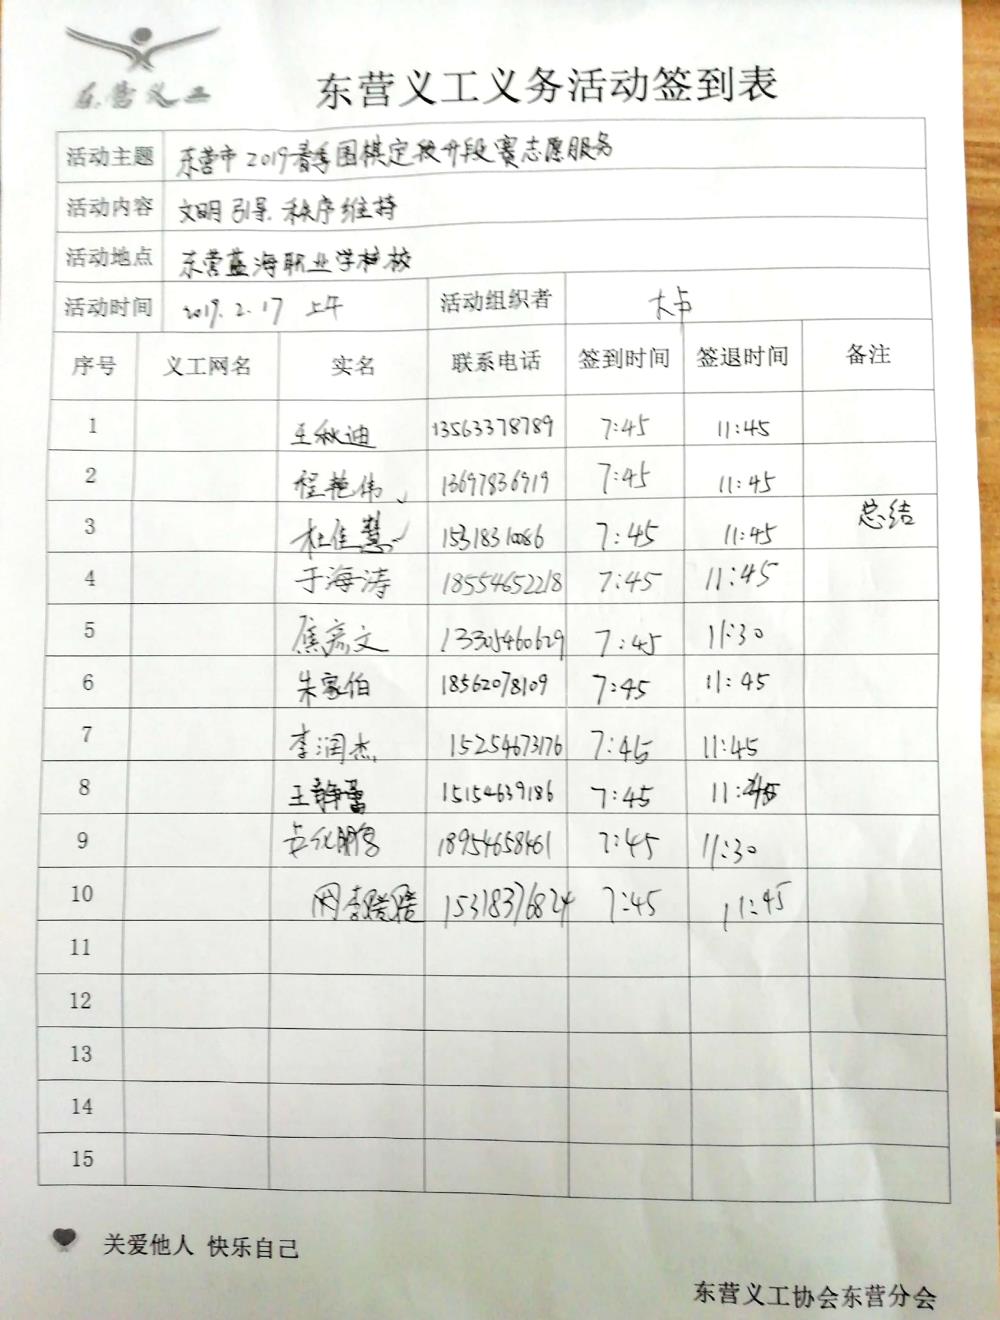 东营义工
东营义工义务活动签到表
活动主题 东营市2019春季围棋定段升段赛志愿服务
活动内容 文明引导.秩序维持
活动地点 东营蓝海职业学校
活动时间 2019.2.17 上午 活动组织者 大卢
序号 义工网名 实名 联系电话 签到时间 签退时间 备注
1 王秋迪 13563378789 7:45 11:45
2 程艳伟 13697836919 7:45 11:45
3 杜佳慧 15318310086 7:45 11:45 总结
4 于海涛 18554652218 7:45 11:45
5 焦彦文 13305460629 7:45 11:30
6 朱家伯 18562078109 7:45 11:45
7 李润杰 15254673176 7:45 11:45
8 王静蕾 15154639186 7:45 11:45
9 18954658461 7:45 11:30
10 15318376824 7:45 11:45
11
12
13
14
15
关爱他人 快乐自己
东营义工协会东营分会